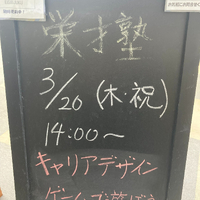 栄才塾
3/20(木・祝)
14:00～
キャリアデザイン
ゲームで遊ぼう